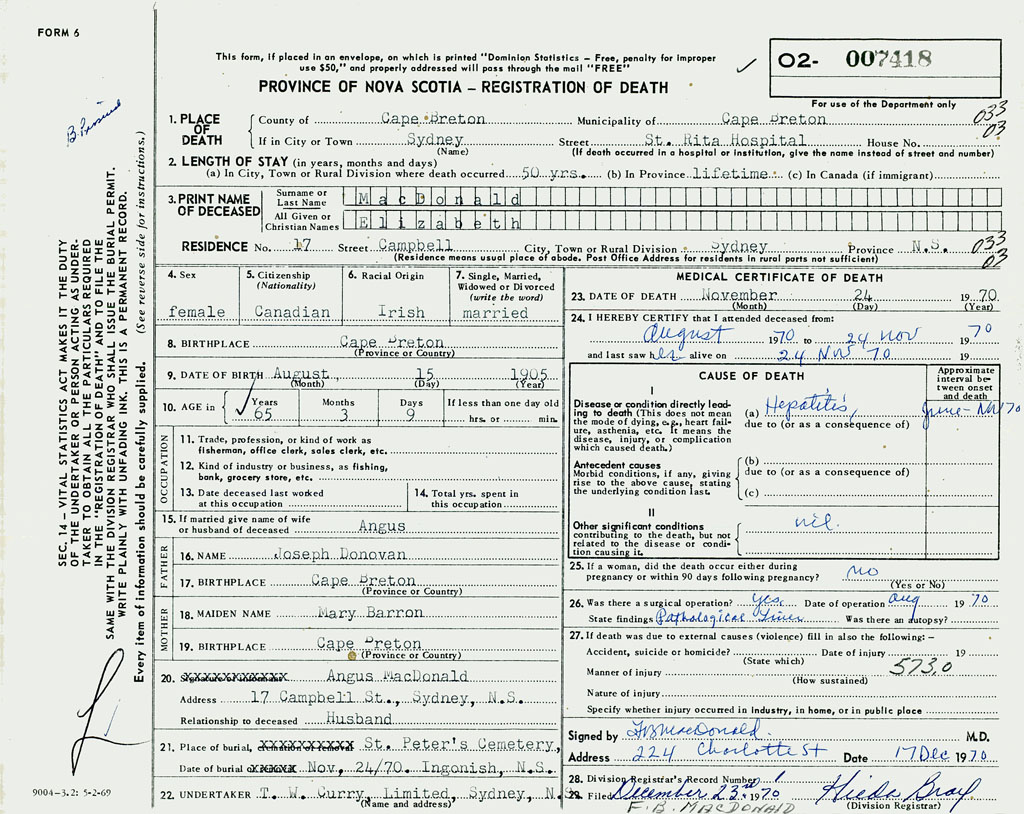 FORM 6
This form, if placed in an envelope, on which is printed "Dominion Statistics – Free, penalty for improper
use $50," and properly addressed will pass through the mail "FREE"
02- 007418
PROVINCE OF NOVA SCOTIA – REGISTRATION OF DEATH
For use of the Department only
033
03
1. PLACE OF DEATH
County of Cape Breton Municipality of Cape Breton
If in City or Town Sydney Street St. Rita Hospital House No.
(Name) (If death occurred in a hospital or institution, give the name instead of street and number)
2. LENGTH OF STAY (in years, months and days)
(a) In City, Town or Rural Division where death occurred 50 yrs. (b) In Province lifetime (c) In Canada (if immigrant)
3. PRINT NAME OF DECEASED
Surname or Last Name MacDonald
All Given or Christian Names Elizabeth
RESIDENCE No. 17 Street Campbell City, Town or Rural Division Sydney Province N.S.
(Residence means usual place of abode. Post Office Address for residents in rural parts not sufficient)
033
03
4. Sex
female
5. Citizenship
(Nationality)
Canadian
6. Racial Origin
Irish
7. Single, Married,
Widowed or Divorced
(write the word)
married
8. BIRTHPLACE Cape Breton
(Province or Country)
9. DATE OF BIRTH August 15 1905
(Month) (Day) (Year)
10. AGE in
Years Months Days If less than one day old
65 3 9 hrs. or min.
OCCUPATION
11. Trade, profession, or kind of work as
fisherman, office clerk, sales clerk, etc.
12. Kind of industry or business, as fishing,
bank, grocery store, etc.
13. Date deceased last worked
at this occupation
14. Total yrs. spent in
this occupation
15. If married give name of wife
or husband of deceased Angus
FATHER
16. NAME Joseph Donovan
17. BIRTHPLACE Cape Breton
MOTHER
18. MAIDEN NAME Mary Barron
19. BIRTHPLACE Cape Breton
(Province or Country)
20. XXXXXXXXXXXX Angus MacDonald
Address 17 Campbell St., Sydney, N.S.
Relationship to deceased Husband
21. Place of burial, XXXXXXXXXX St. Peter's Cemetery,
Date of burial or XXXXX Nov, 24/70. Ingonish, N.S.
22. UNDERTAKER T. W. Curry, Limited, Sydney, N.S.
(Name and address)
MEDICAL CERTIFICATE OF DEATH
23. DATE OF DEATH November 24 1970
(Month) (Day) (Year)
24. I HEREBY CERTIFY that I attended deceased from:
August 1970 to 24 Nov 70
and last saw her alive on 24 Nov 70 19
CAUSE OF DEATH
Approximate
interval be-
tween onset
and death
I
Disease or condition directly lead-
ing to death (This does not mean
the mode of dying, e.g., heart fail-
ure, asthenia, etc. It means the
disease, injury, or complication
which caused death.)
(a) Hepatitis, June - Nov 70
due to (or as a consequence of)
Antecedent causes
Morbid conditions, if any, giving
rise to the above cause, stating
the underlying condition last.
(b)
due to (or as a consequence of)
(c)
II
Other significant conditions
contributing to the death, but not
related to the disease or condi-
tion causing it.
nil.
25. If a woman, did the death occur either during
pregnancy or within 90 days following pregnancy? no
(Yes or No)
26. Was there a surgical operation? yes Date of operation Aug 1970
State findings Pathological Liver Was there an autopsy?
27. If death was due to external causes (violence) fill in also the following: –
Accident, suicide or homicide? Date of injury 19
(State which)
Manner of injury 573.0
(How sustained)
Nature of injury
Specify whether injury occurred in industry, in home, or in public place
Signed by FBMacDonald M.D.
Address 224 Charlotte St Date 17 Dec 1970
28. Division Registrar's Record Number
29. Filed December 23rd 1970 Hieda Bray
F. B. MACDONALD (Division Registrar)
SEC. 14 – VITAL STATISTICS ACT MAKES IT THE DUTY
OF THE UNDERTAKER OR PERSON ACTING AS UNDER-
TAKER TO OBTAIN ALL THE PARTICULARS REQUIRED
IN THE "REGISTRATION OF DEATH" AND TO FILE THE
SAME WITH THE DIVISION REGISTRAR WHO SHALL ISSUE THE BURIAL PERMIT.
WRITE PLAINLY WITH UNFADING INK. THIS IS A PERMANENT RECORD.
Every item of information should be carefully supplied. (See reverse side for instructions.)
9004-3.2: 5-2-69